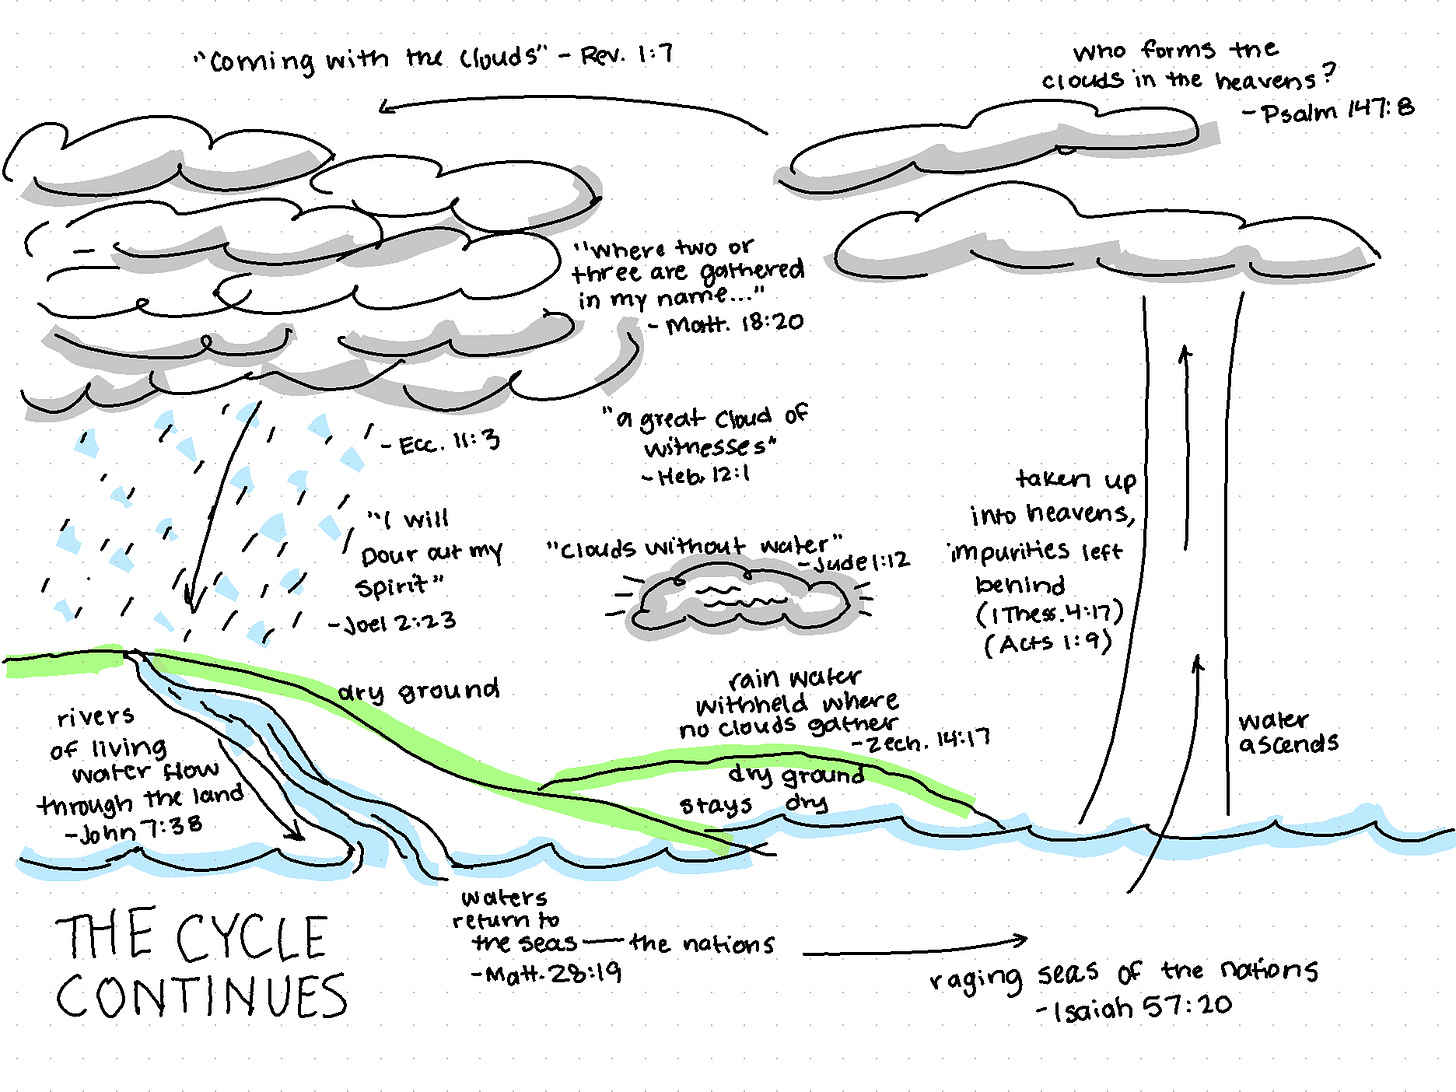 "Coming with the Clouds" - Rev. 1:7
Who forms the
clouds in the heavens?
- Psalm 147:8
"Where two or
three are gathered
in my name..."
- Matt. 18:20
- Ecc. 11:3
"a great cloud of
witnesses"
- Heb. 12:1
"I will
pour out my
Spirit"
- Joel 2:23
"Clouds without water"
- Jude 1:12
taken up
into heavens,
impurities left
behind
(1 Thess. 4:17)
(Acts 1:9)
dry ground
rain water
withheld where
no clouds gather
- Zech. 14:17
dry ground
stays dry
water
ascends
rivers
of living
water flow
through the land
- John 7:38
waters
return to
the seas — the nations
- Matt. 28:19
raging seas of the nations
- Isaiah 57:20
THE CYCLE
CONTINUES